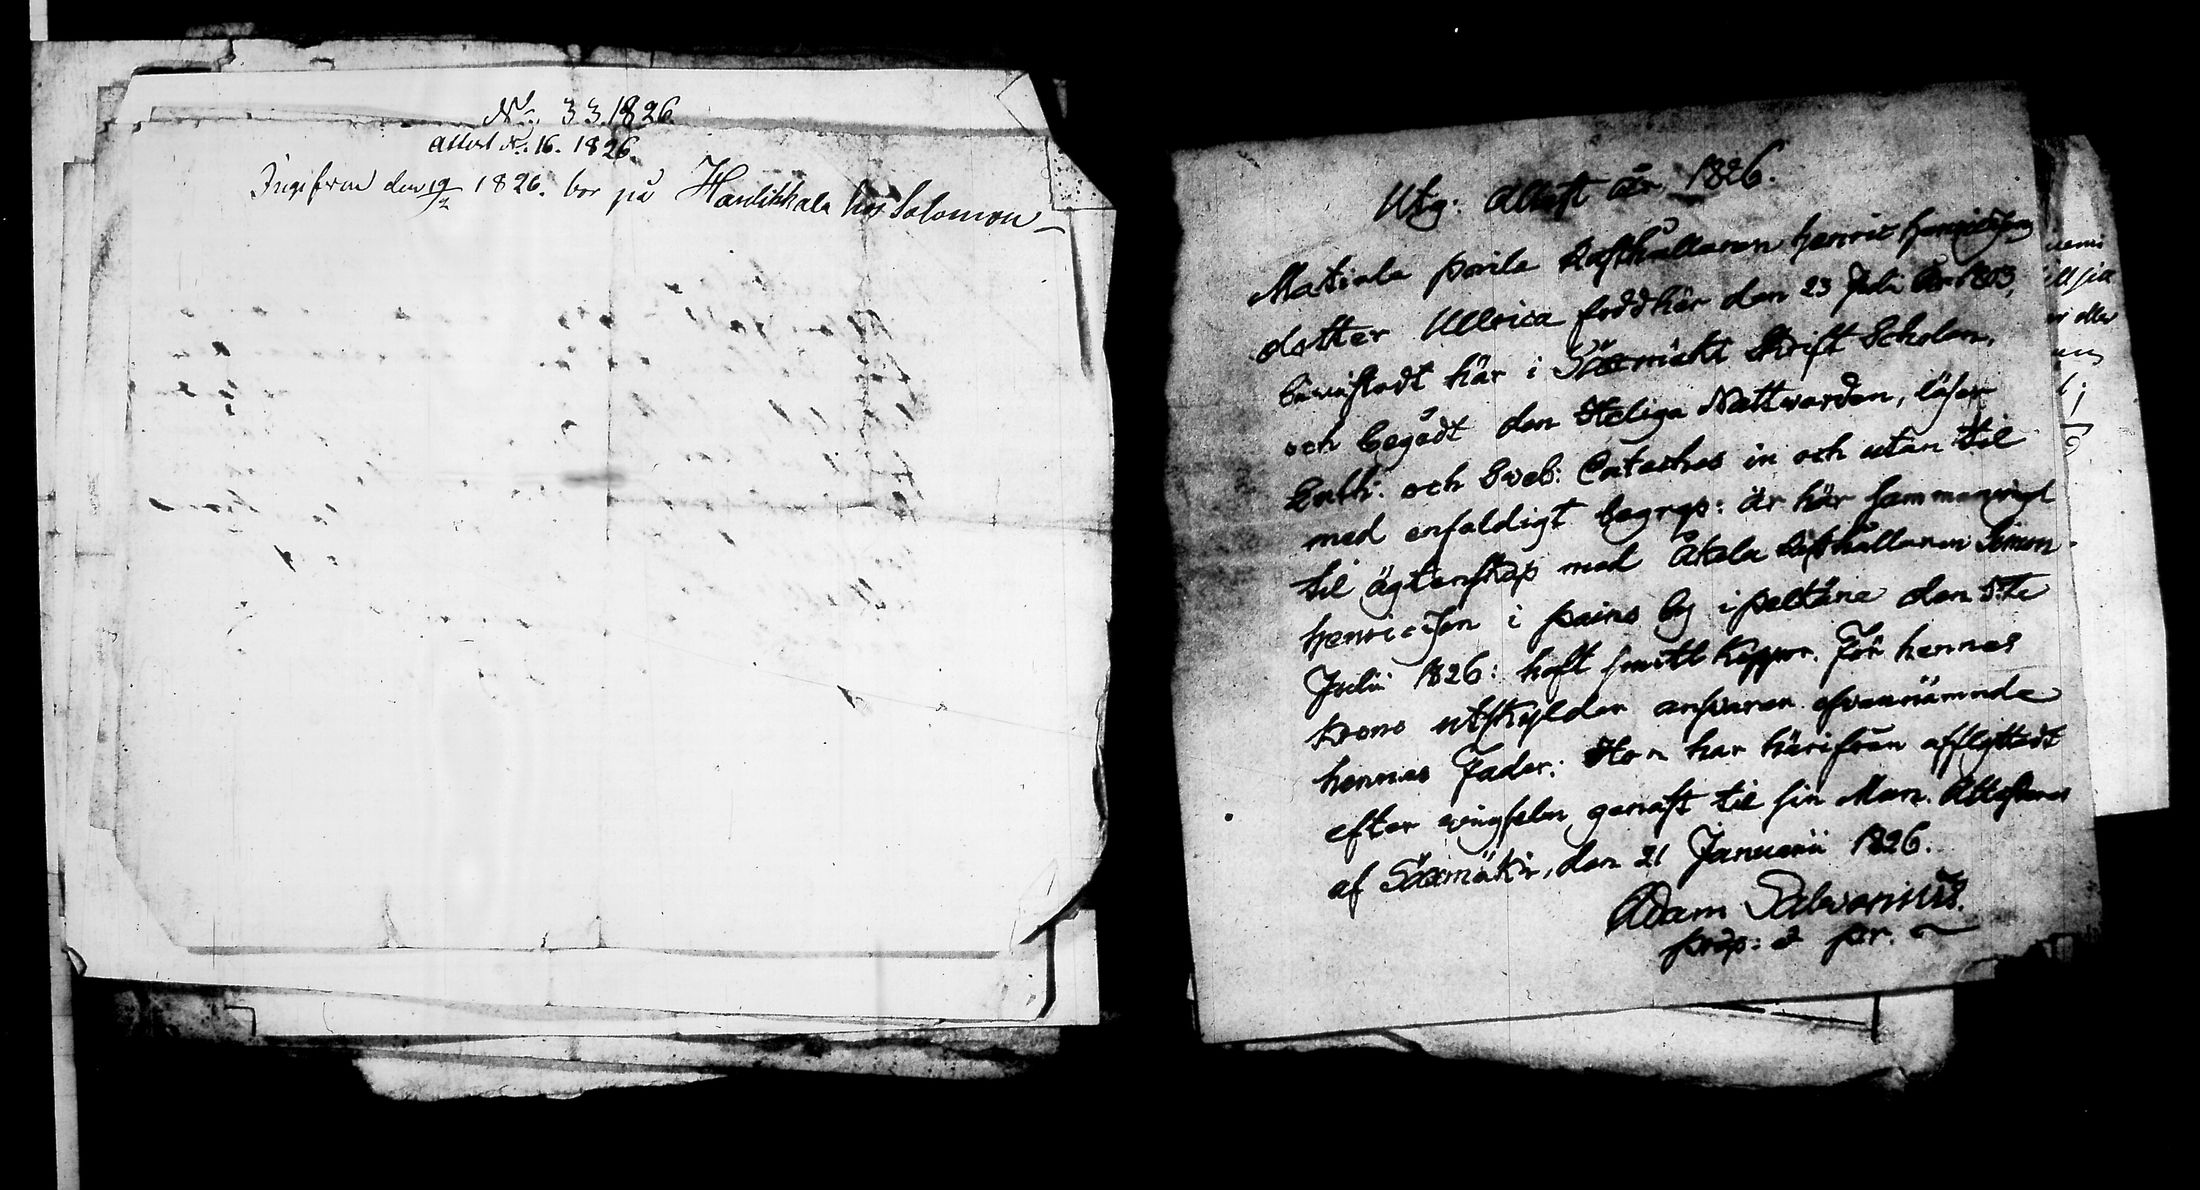 No. 33. 1826.
Attest No. 16. 1826.
Ingifven den 19/2 1826. bor på Haulikkala hos Solomon
Utg: Attest År 1826.
Matiala Perila Rusthållaren Henric Henricssons
dotter Ullrica född här den 23 Juli År 1803,
bewistadt här i Säxmäki Skrift Scholan,
och begådt den Heliga Nattwarden, läser
Luth: och Sveb: Cateches in och utan til
med enfaldigt begrep: är här sammanwigd
til ägtenskap med Äkela Rusthållaren Simon
Henricsson i Paino by i Pältäne den 5te
Julii 1826: haft smittkoppor. För hennes
Krono utskylder answarar ofvannämnde
hennes Fader. Hon har härifrån afflyttadt
efter wigseln genast til sin Man. Attesteras
af Säxmäki, den 21 Januarii 1826.
Adam Salvorinus.
prop: & Pr.